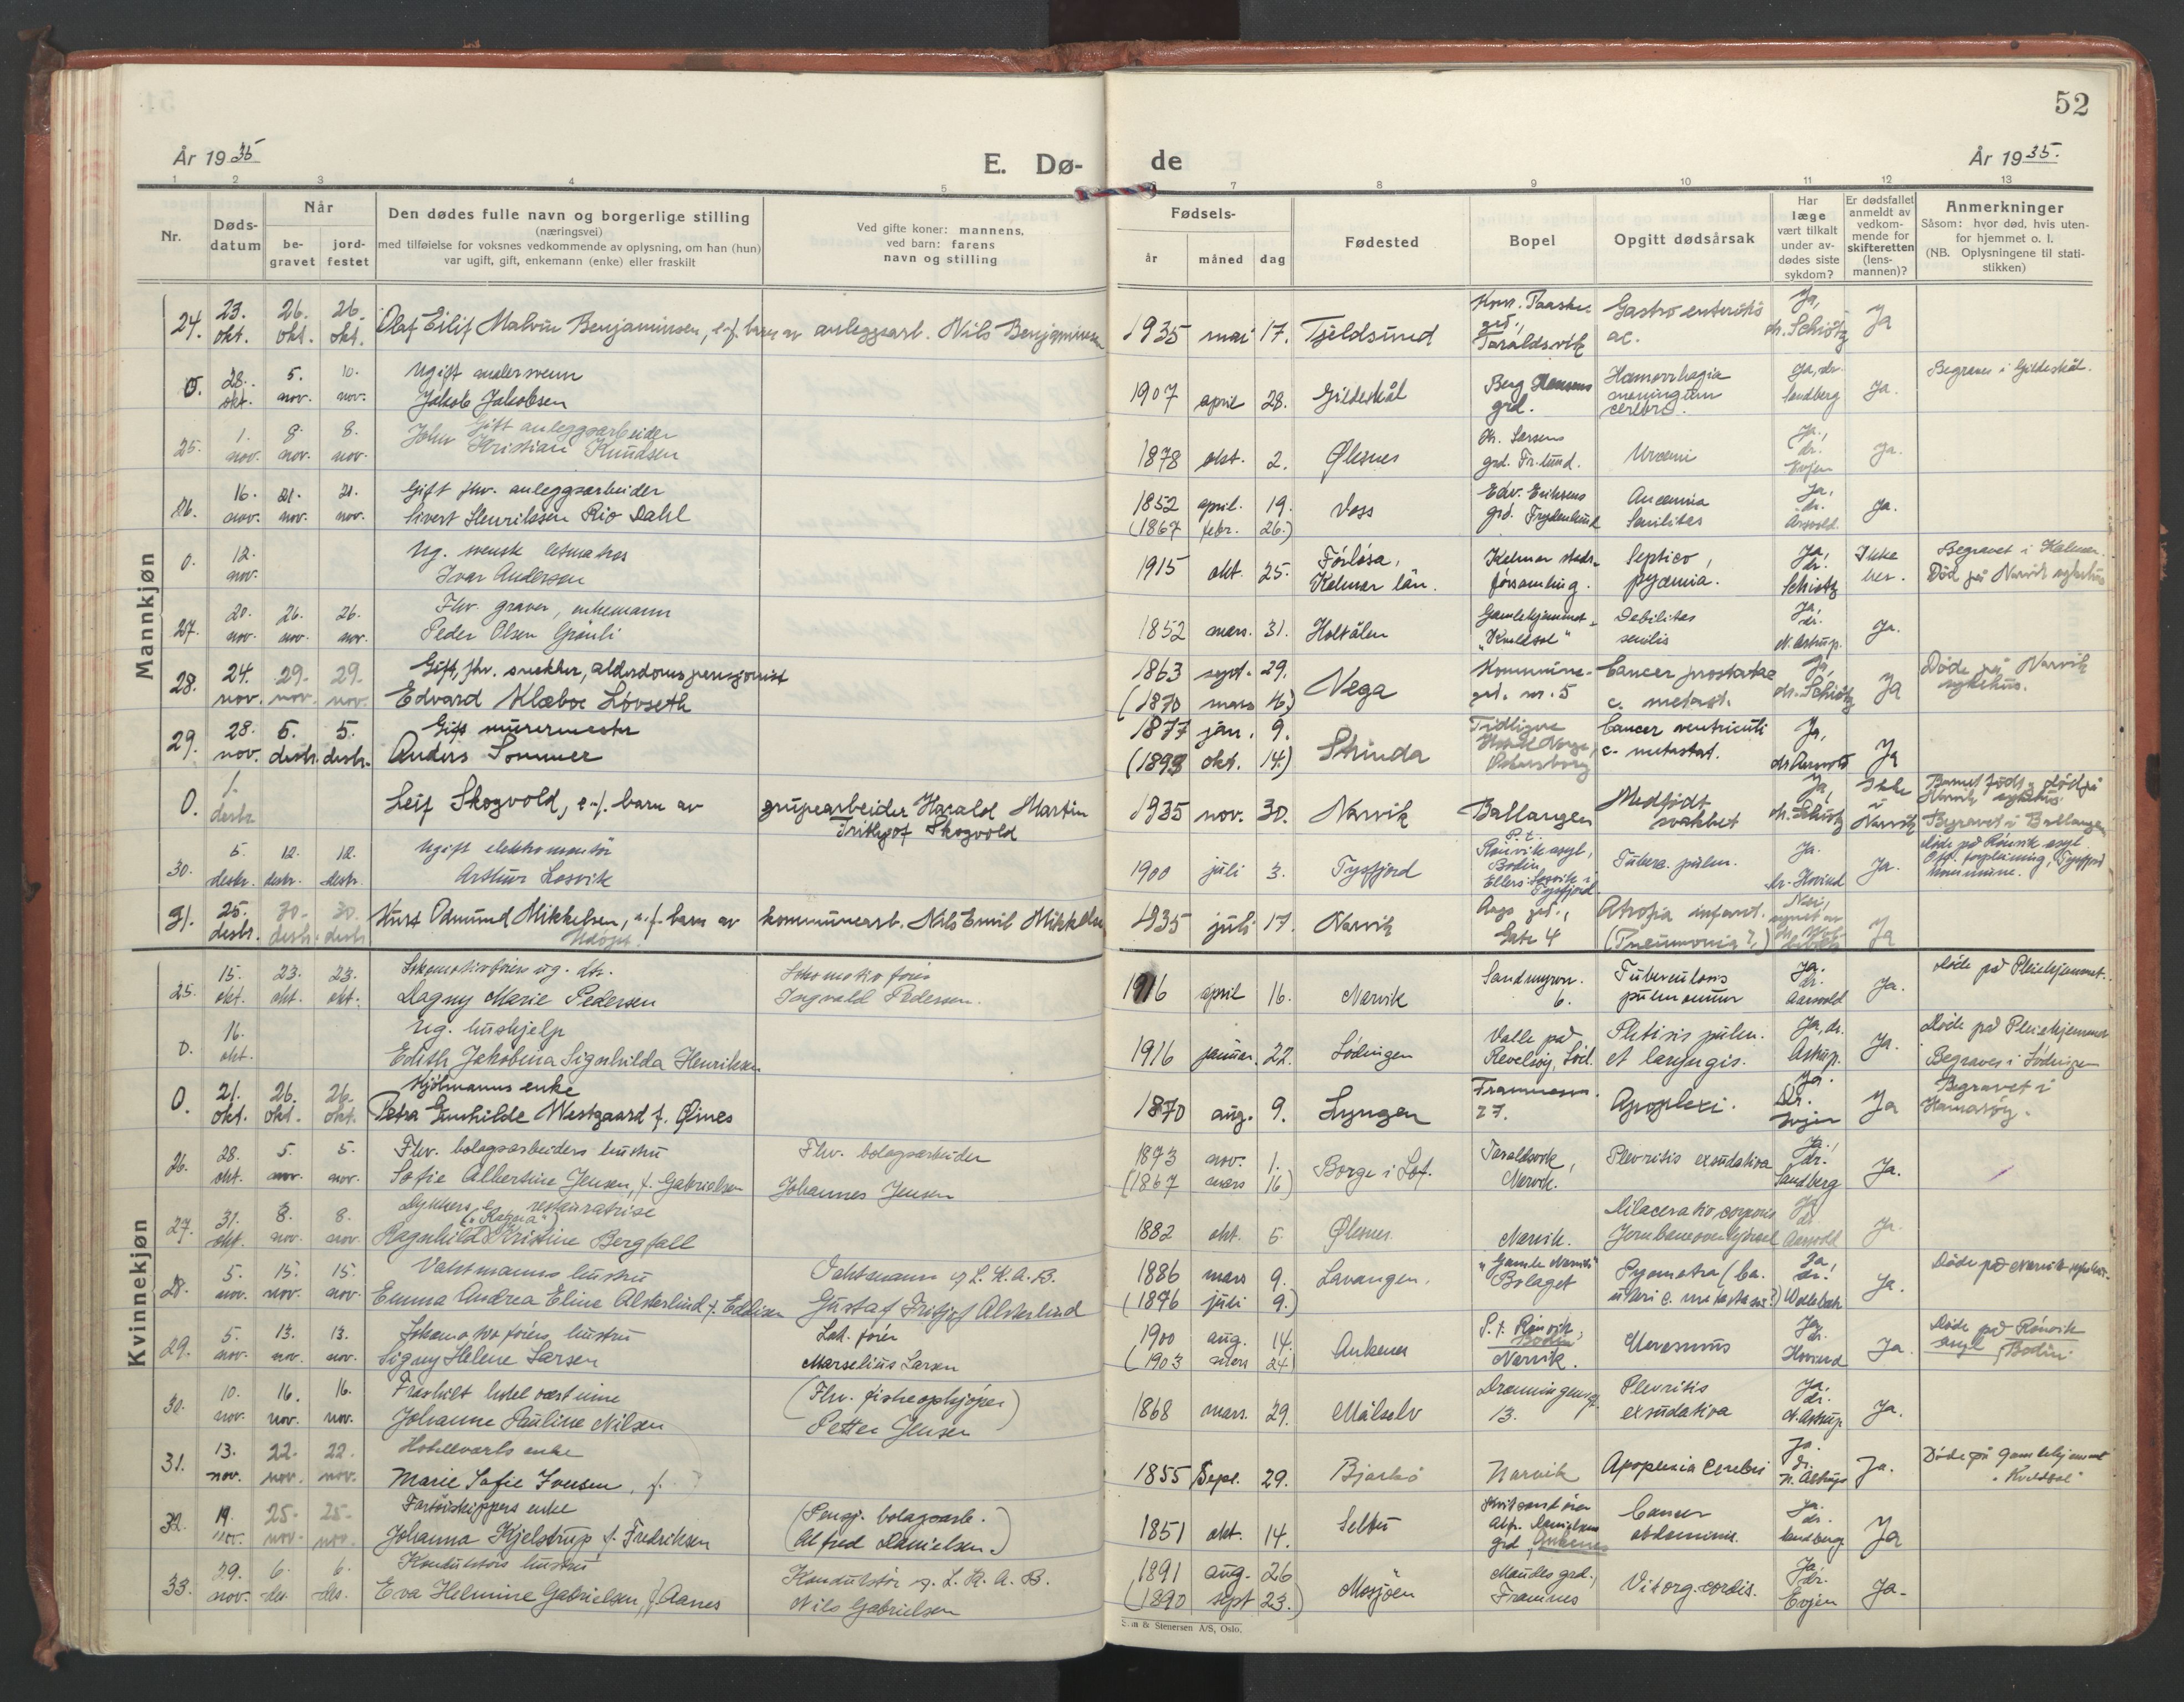 52
År 1935
E. Dø-
de
År 1935.
1 2 3 4 5 6 7 8 9 10 11 12 13
Nr.
Dødsdatum
Når
begravet
jordfestet
Den dødes fulle navn og borgerlige stilling
(næringsvei)
med tilføielse for voksnes vedkommende av oplysning, om han (hun)
var ugift, gift, enkemann (enke) eller fraskilt
Ved gifte koner: mannens,
ved barn: farens
navn og stilling
Fødsels-
år måned dag
Fødested
Bopel
Opgitt dødsårsak
Har
læge
vært tilkalt
under avdødes siste
sykdom?
Er dødsfallet
anmeldt av
vedkommende for
skifteretten
(lensmannen)?
Anmerkninger
Såsom: hvor død, hvis utenfor hjemmet o. l.
(NB. Oplysningene til statistikken)
Mannkjøn
24. 23. okt. 26. okt. 26. okt. Olaf Eilif Malvin Benjaminsen, e.f. barn av anleggsarb. Nils Benjaminsen 1935 mai 17. Tjeldsund Taraldsvik Gastroenteritis ac. Ja, dr. Schiøtz Ja
0. 28. okt. 5. nov. 10. nov. Ugift malersvenn
Jakob Jakobsen 1907 april 28. Gildeskål Berg Hansens grd. Hæmorrhagia meningum cerebri. Ja, dr. Sandberg Ja. Begraves i Gildeskål.
25. 1. nov. 8. nov. 8. nov. Gift anleggsarbeider
John Kristian Knudsen 1878 okt. 2. Øksnes Kr. Larsens grd. Fr.lund. Uræmi Ja, dr. Evjen Ja.
26. 16. nov. 21. nov. 21. nov. Gift fhv. anleggsarbeider
Sivert Henrikssen Rio Dahl 1852 april. 19. (1867 febr. 26.) Voss Edv. Eriksens grd. Frydenlund Anæmia Senilitas Ja, dr. Aarvold Ja.
0. 12. nov. Ug. svensk letmatros
Ivar Anderson 1915 okt. 25. Förlösa, Kalmar län. Kalmar stads-församling. Septico, pyæmia. Ja, dr. Schiøtz Ikke her. Begravet i Kalmar. Død på Narvik sykehus
27. 20. nov. 26. nov. 26. nov. Fhv. graver, enkemann
Peder Olsen Grønli 1852 mars. 31. Holtålen Gamlehjemmet „Kveldsol" Debilitas senilis Ja, dr. N. Astrup. Ja.
28. 24. nov. 29. nov. 29. nov. Gift, fhv. snekker, alderdomspensjonist
Edvard Klæboe Løvseth 1863 sept. 29. (1870 mars 16.) Vega Kommune-grd. nr. 5 Cancer prostatae c. metast. Ja, dr. Schiøtz Ja Døde på Narvik sykehus.
29. 28. nov. 5. desbr. 5. desbr. Gift murermester
Anders Sommer 1877 jan. 9. (1893 okt. 14.) Strinda Cancer ventriculi c. metastat. Ja, dr. Aarvold Ja
0. 1. desbr Leif Skogvold, e.f. barn av grupearbeider Harald Martin
Frithjof Skogvold 1935 nov. 30. Narvik Ballangen Medfødt svakhet Ja, dr. Schiøtz Ikke i Narvik Barnet født og død på Narvik sykehus Begravet i Ballangen
30. 5. desbr. 12. desbr. 12. desbr. Ugift elektromontør
Arthur Losvik 1900 juli 3. Tysfjord P.t. Rønvik asyl, Bodin Ellers: Losvik i Tysfjord. Tuberc. pulm. Ja. dr. Hovind Ja. Døde på Rønvik asyl. Off. forpleining, Tysfjord kommune.
31. 25. desbr. 30. desbr. 30. desbr. Kurt Odmund Mikkelsen, e.f. barn av kommunearb. Nils Emil Mikkelsen
Udøpt. 1935 juli 17. Narvik Gate 4 Atrofia infant. (Pneumonia?) Nei, Ja
Kvinnekjøn
25. 15. okt. 23. okt. 23. okt. Lokomotivførers ug. dtr.
Dagny Marie Pedersen Lokomotivfører
Ingvald Pedersen. 1916 april 16. Narvik Sandmyrvn. 6. Tuberculosis pulmonum Ja. dr. Aarvold Ja. Døde på Pleiehjemmet.
0. 16. okt. Ug. hushjelp
Edith Jakobina Signhilda Henriksen 1916 januar. 22. Lødingen Valle på Revelsøy, Lød. Phtisis pulm. et laryngis. Ja, dr. Astrup. Ja. Døde på Pleiehjemmet Begraves i Lødingen
0. 21. okt. 26. okt. 26. okt. enke
Petra Gunhilde Westgaard f. Olnes 1870 aug. 9. Lyngen Framnesv. 27. Apoplexi. Ja. Dr. Evjen Ja Begravet i Hamarøy.
26. 28. okt. 5. nov. 5. nov. Fhv. bolagsarbeiders hustru
Sofie Albertine Jensen, f. Gabrielsen Fhv. bolagsarbeider
Johannes Jensen 1873 nov. 1. (1867 mars 16) Borge i Lof. Taraldsvik, Narvik. Plevritis exsudativa Ja, dr. Sandberg Ja.
27. 31. okt. 8. nov. 8. nov. restauratrise
Ragnhild Kristine Bergfall 1882 okt. 5 Øksnes. Narvik. Dilaceratio corporis Jernbaneoverkjørsel Ja dr. Aarvold Ja.
28. 5. nov. 15. nov. 15. nov. Vaktmanns hustru
Emma Andrea Eline Alsterlind f. Eddisen Vaktmann v. L.K.A.B.
Gustaf Fritjof Alsterlind 1886 mars 9. (1876 juli 9.) Lavangen. „Gamle Narvik" Bolaget Pyometra (Ca. uteri c. metastase?) Ja, dr. Wollebæk Ja. Døde på Narvik sykehus.
29. 5. nov. 13. nov. 13. nov. Lokomotivførers hustru
Signy Helene Larsen Lok. fører
Marselius Larsen 1900 aug. 14. (1903 mars 24) Ankenes P.t. Rønvik, Bodin Narvik. Ja, dr. Hovind Ja Døde på Rønvik asyl, Bodin.
30. 10. nov. 16. nov. 16. nov. Fraskilt hotelvertinne
Johanne Pauline Nilsen (Fhv. fiskeopkjøper)
Petter Jensen 1868 mars. 29. Målselv Dronningensgt. 13. Plevritis exsudativa Ja. dr. N. Astrup Ja.
31. 13. nov. 22. nov. 22. nov. Hotellverts enke
Marie Sofie Iversen, f. ? 1855 Sept. 29. Bjarkø Narvik Apoplexia cerebri Ja. dr. N. Astrup Ja. Døde på Gamlehjemmet „Kveldsol"
32. 19. nov. 25. nov. 25. nov. Fartøiskippers enke
Johanna Kjelstrup f. Fredriksen (Pensj. bolagsarb.
Alfred Danielsen.) 1851 okt. 14. Selbu Alfr. Danielsens grd., Ankenes Cancer abdominis. Ja. dr. Sandberg Ja
33. 29. nov. 6. des. 6. des. Konduktørs hustru
Eva Helmine Gabrielsen, f. Aanes Konduktør v. L.K.A.B.
Nils Gabrielsen 1891 aug. 26 (1890 sept 23.) Mosjøen Maudes grd., Framnes Vit. org. cordis. Ja dr. Evjen Ja.
& Stenersen A/S, Oslo.